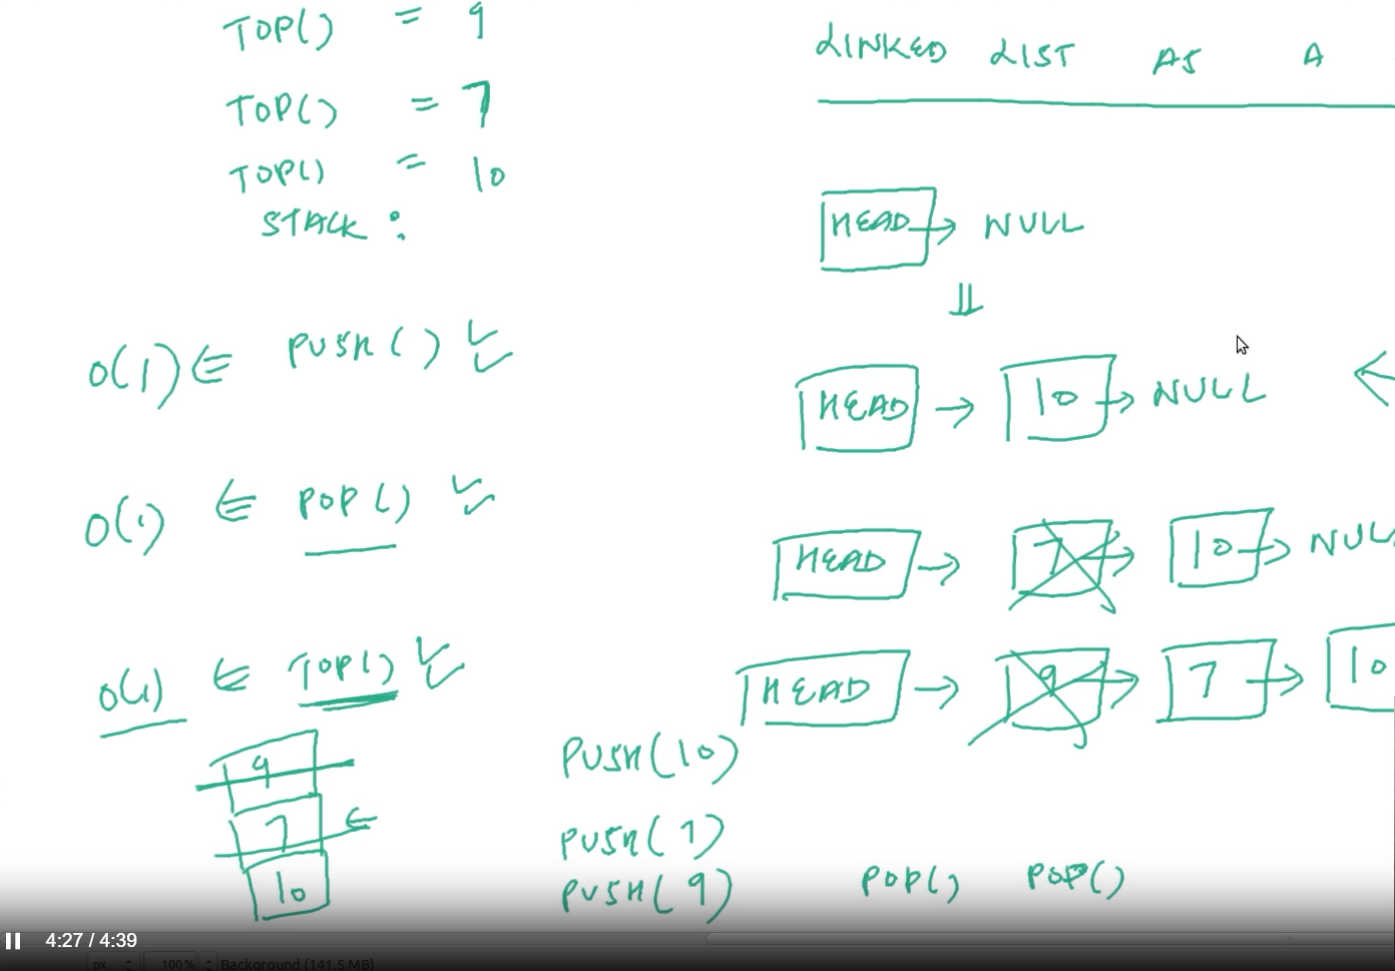 TOP() = 9
TOP() = 7
TOP() = 10
STACK :
O(1) ∈ PUSH()
O(1) ∈ POP()
O(1) ∈ TOP()
9
7
10
PUSH(10)
PUSH(7)
PUSH(9)
POP() POP()
LINKED LIST AS A
HEAD → NULL
HEAD → 10 → NULL
HEAD → 7 → 10 → NUL
HEAD → 9 → 7 → 10
4:27 / 4:39
px 100% Background (141.5 MB)